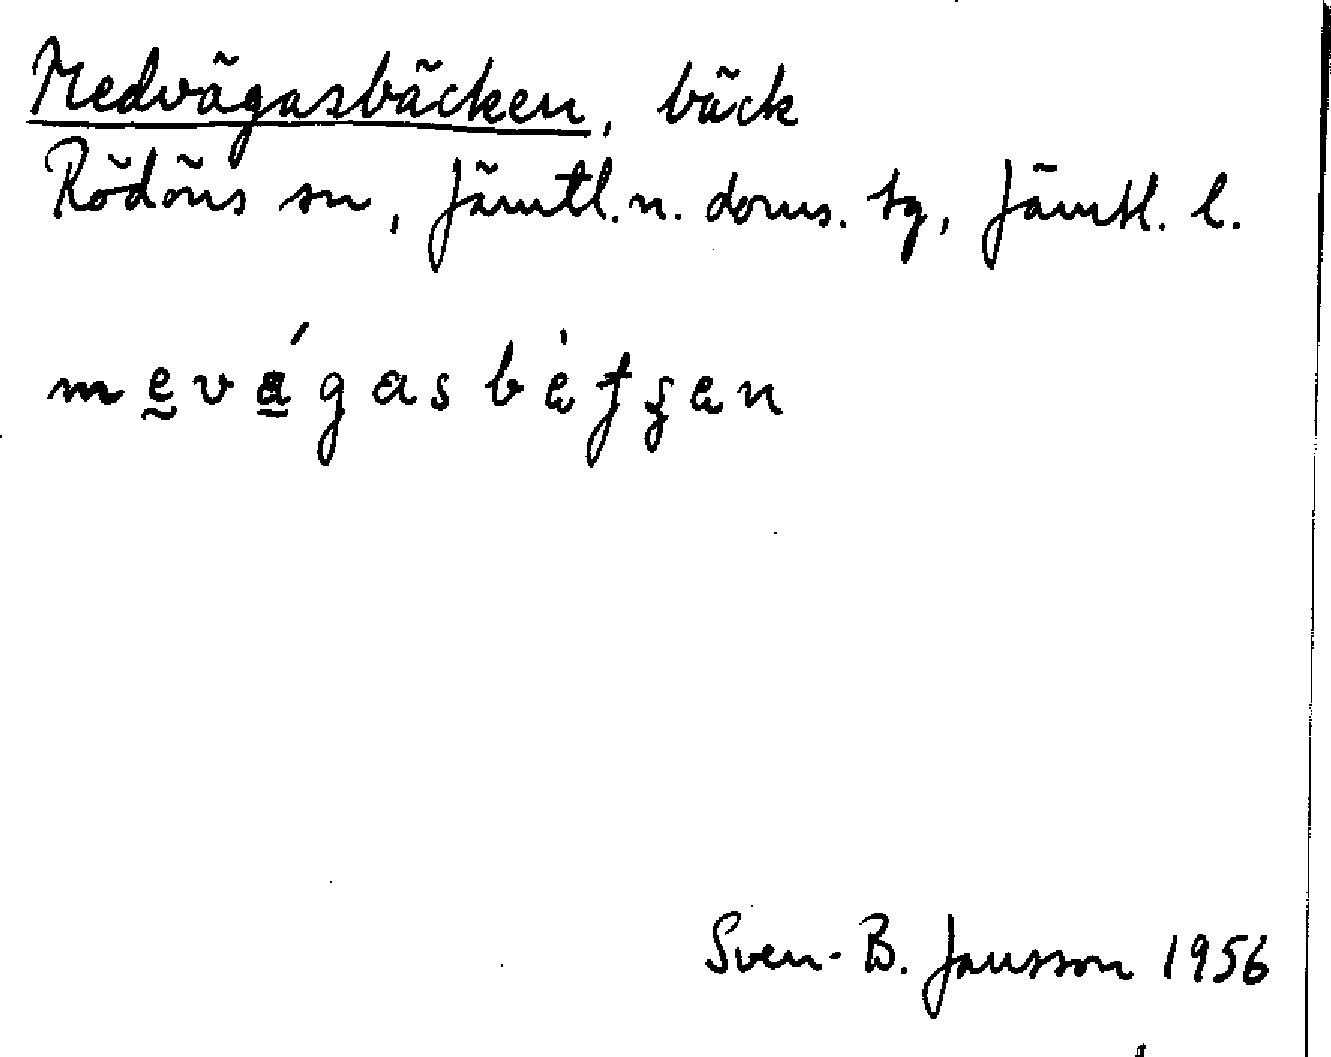 Medvågasbäcken, bäck
Rödöns sn, Jämtl.n. doms. tg, Jämtl. l.
mevágasbètʃen
Sven-B. Jansson 1956